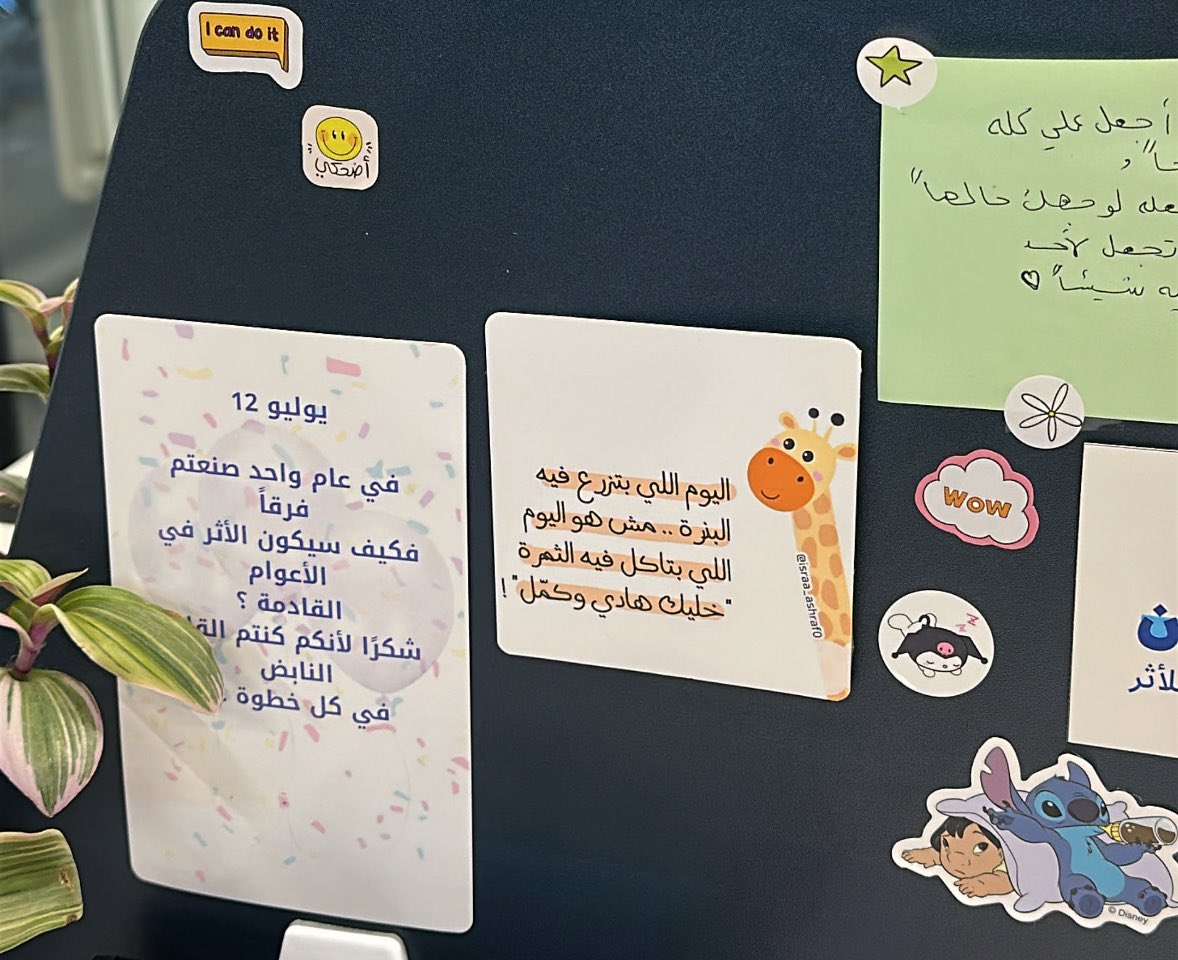 I can do it
أضحكي
أجعل علي كله
لوجهك خالصا"
تجعل لأحد
شيئا"
يوليو 12
في عام واحد صنعتم
فرقاً
فكيف سيكون الأثر في
الأعوام
القادمة ؟
شكرًا لأنكم كنتم
النابض
في كل خطوة
اليوم اللي بتزرع فيه
البذرة .. مش هو اليوم
اللي بتاكل فيه الثمرة
"خليك هادي وكمّل" !
@israa_ashraf0
WOW
للأثر
© Disney